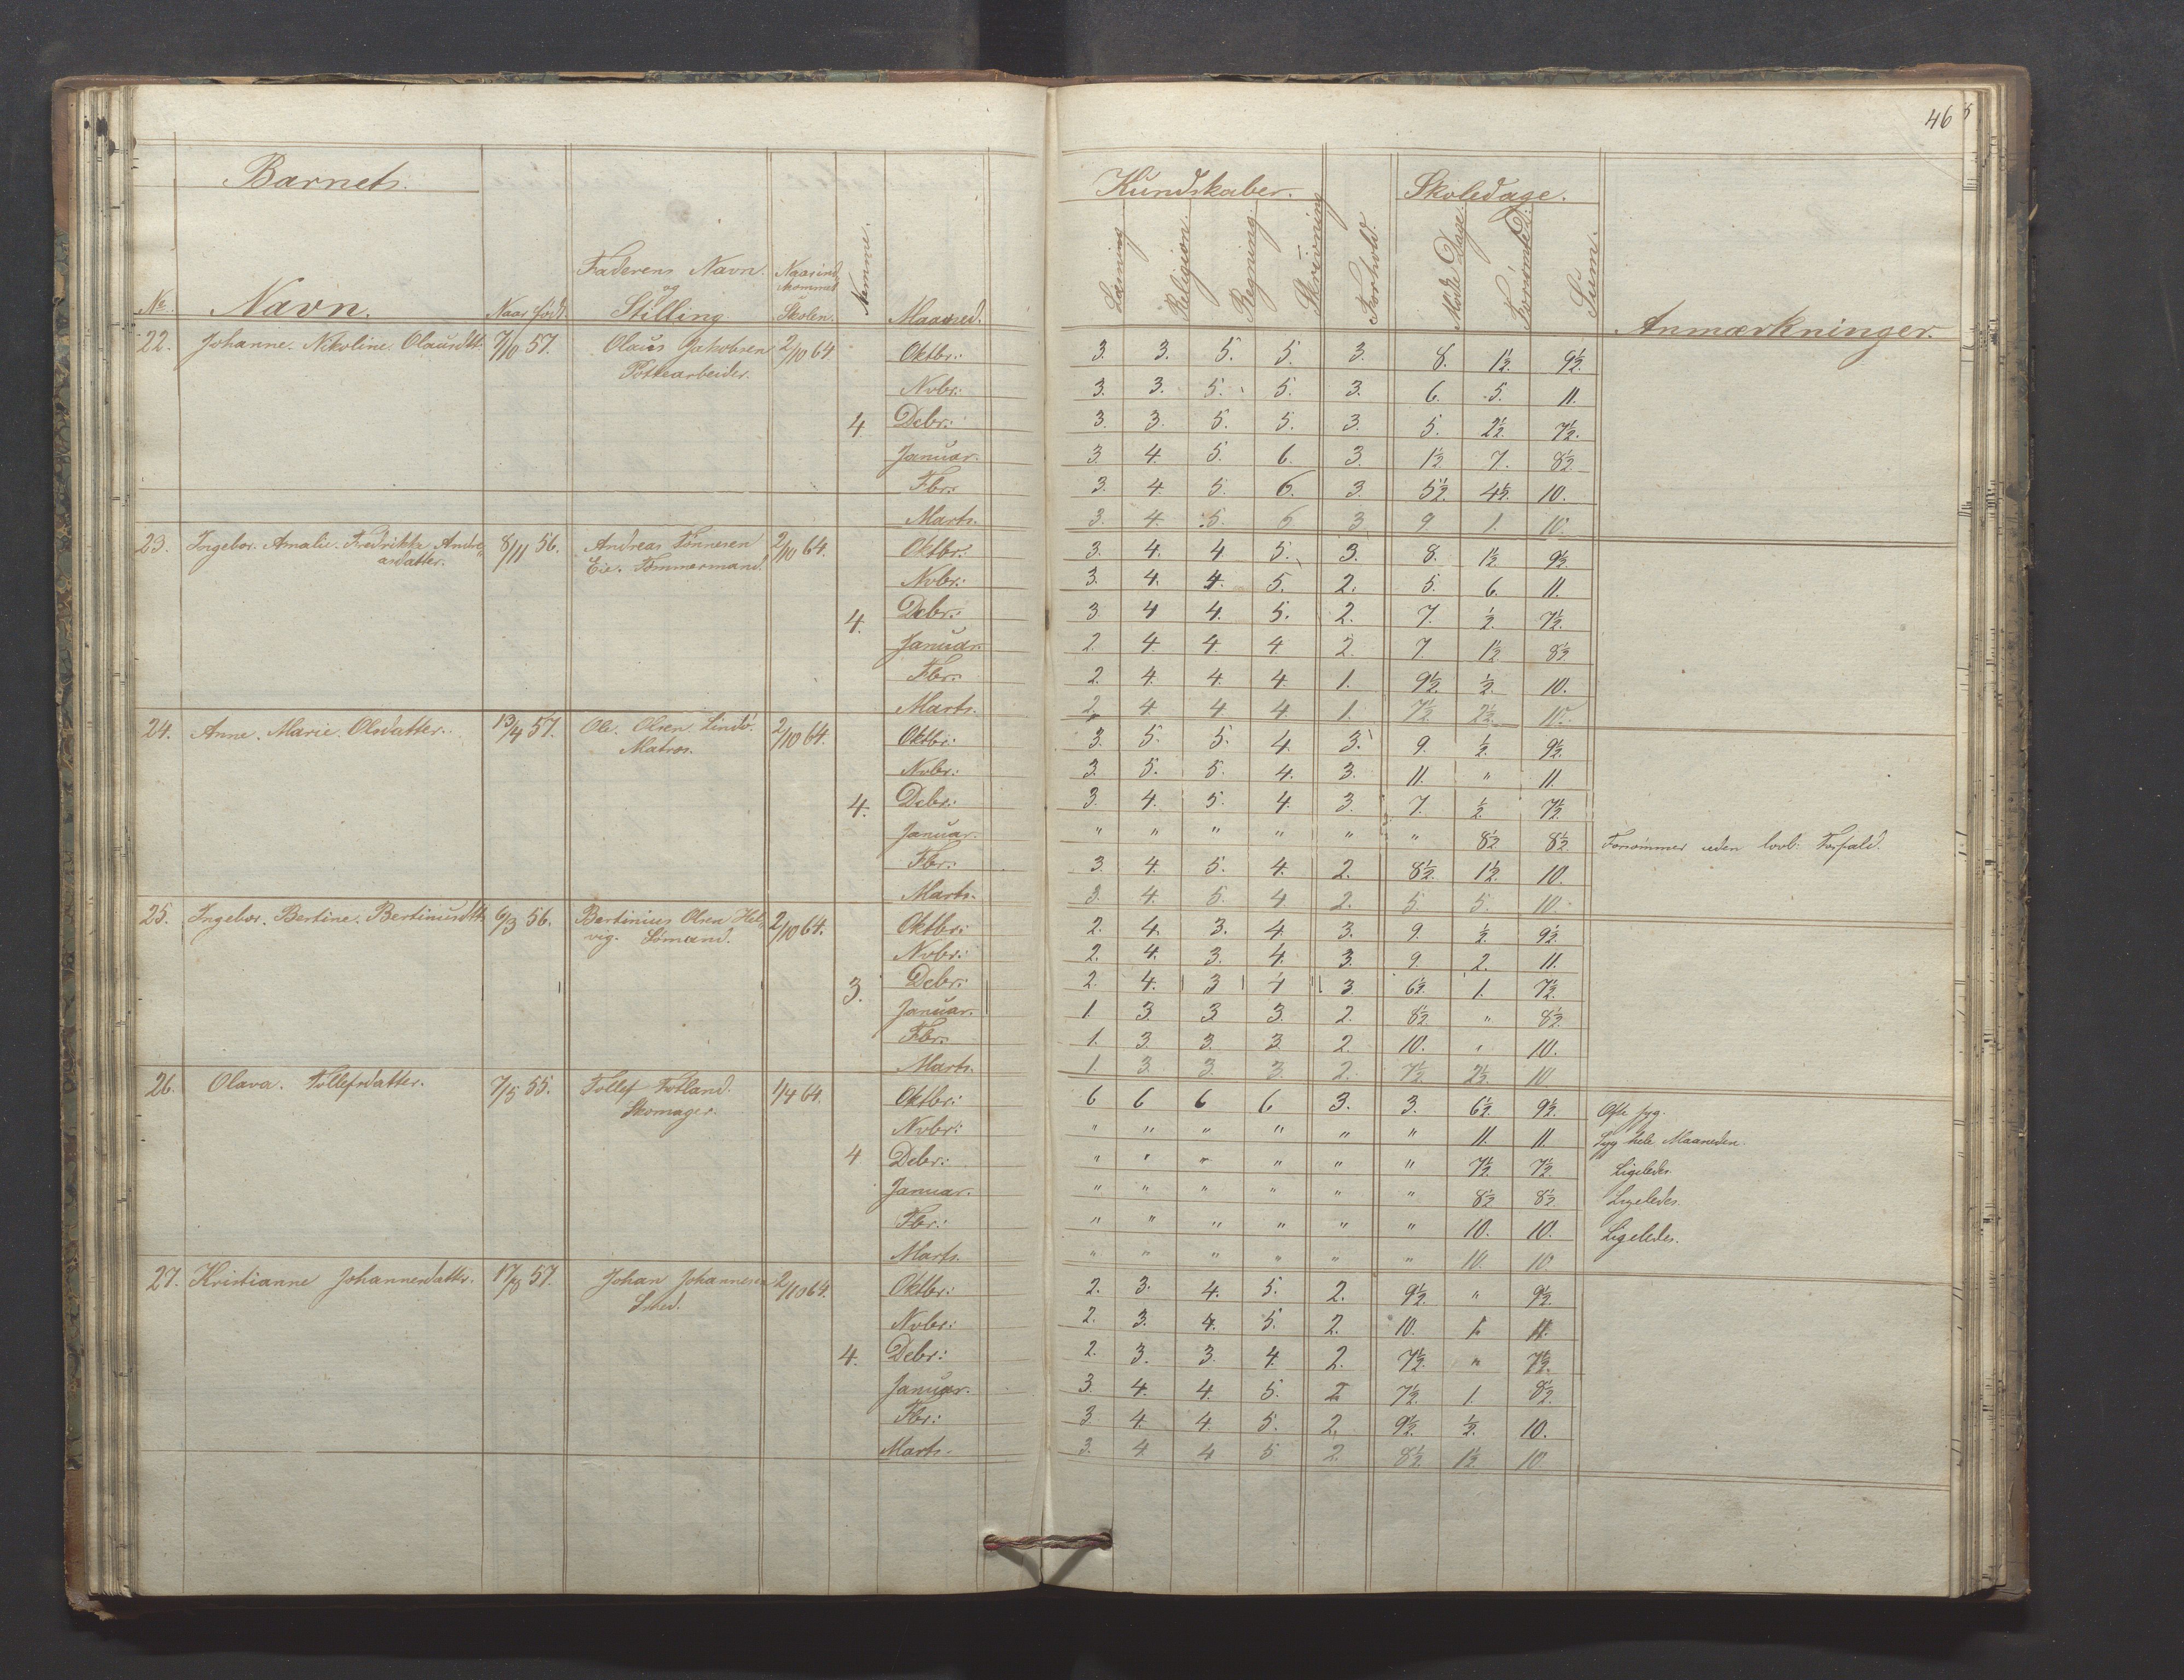 46
Barnets.
Kundskaber.
Skoledage.
No. Navn. Naar født. Faderens Navn og Stilling Naar ind kommet Skolen. Nemme. Maaned. Læsning Religion. Regning. Skrivning Forhold. Mødte Dage. Forsømte D: Sum. Anmærkninger.
22. Johanne. Nikoline Olausdtt. 7/10 57. Olaus Jakobsen 2/10 64. Oktbr: 3. 3. 5. 5. 3. 8. 1½. 9½.
Pottearbeider.
Nvbr: 3. 3. 5. 5. 3. 6. 5. 11.
4. Debr: 3. 3. 5. 5. 3. 5. 2½. 7½.
Januar. 3. 4. 5. 6. 3. 1½ 7. 8½
Fbr: 3. 4. 5. 6. 3. 5½. 4½. 10.
Marts. 3. 4. 5. 6 3 9 1. 10.
23. Ingebor. Amalie. Fredrikke Andre 8/11 56. Andreas Tønnesen 2/10 64. Oktbr: 3. 4. 4 5. 3. 8. 1½ 9½
asdatter. Eie. Tømmermand.
Nvbr: 3. 4. 4. 5. 2. 5. 6. 11.
4. Debr: 3 4 4. 5. 2. 7. ½. 7½.
Januar. 2. 4. 4 4 2. 7 1½ 8½
Fbr: 2. 4. 4. 4. 1. 9½. ½. 10.
Marts. 2. 4 4 4. 1. 7½ 2½. 10.
24. Anne. Marie. Olsdatter. 13/4 57. Ole. Olsen Lindø. 2/10 64. Oktbr: 3. 5. 5. 4. 3. 9. ½. 9½.
Matros.
Nvbr: 3. 5. 5. 4. 3. 11. " 11.
4. Debr: 3. 4. 5. 4. 3. 7. ½. 7½.
Januar. " " " " " " 8½ 8½ Forsømmer uden lovl: Forfald.
Fbr: 3. 4. 5. 4. 2. 8½. 1½. 10.
Marts. 3. 4. 5. 4 2. 5. 5. 10.
25. Ingebor. Bertine. Bertinusdtt. 6/3 56. Bertinius Olsen Hel 2/10 64. Oktbr: 2. 4. 3. 4. 3. 9. ½. 9½.
vig. Sømand.
Nvbr: 2. 4. 3. 4. 3. 9. 2. 11.
3. Debr: 2. 4. 3 4 3. 6½. 1. 7½.
Januar. 1. 3 3 3. 2. 8½ " 8½.
Fbr: 1. 3. 3. 3. 2. 10. " 10.
Marts. 1. 3. 3 3. 2. 7½ 2½. 10
26. Olava. Tollefsdatter. 7/5 55. Tollef Fotland. 1/4 64. Oktbr: 6 6 6 6 3. 3. 6½. 9½. Ofte syg.
Skomager.
Nvbr: " " " " " " 11. 11 Syg hele Maaneden.
4 Debr: " " " " " " 7½. 7½ Ligeledes.
Januar. " " " " " " 8½ 8½. Ligeledes.
Fbr: " " " " " " 10. 10. Ligeledes.
Marts. " " " " " " 10. 10
27. Kristianne Johannesdatter. 17/8 57. Johan Johannesen 2/10 64. Oktbr: 2. 3. 4. 5. 2. 9½. " 9½.
Smed.
Nvbr: 2. 3. 4. 5. 2. 10. 1. 11.
4. Debr: 2. 3. 3. 4. 2. 7½. " 7½.
Januar. 3. 4. 4. 5. 2 7½. 1. 8½.
Fbr: 3 4. 4. 5. 2. 9½. ½. 10.
Marts. 3. 4 4 5 2. 8½. 1½. 10